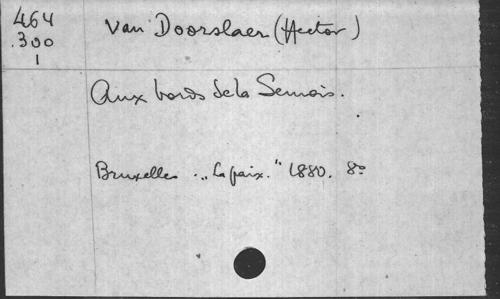 464
.300
1
Van Doorslaer (Hector)
Aux bords de la Semois.
Bruxelles. „La paix." 1880. 8º